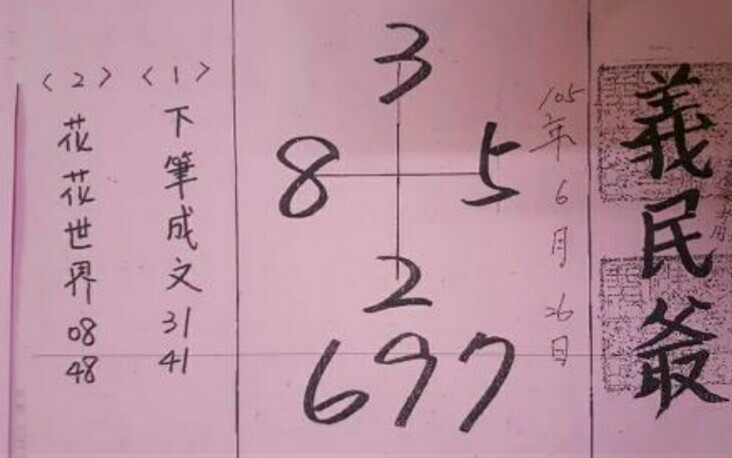 義民爺
105年6月26日
3
8 5
2
697
〈1〉
下筆成文 31 41
〈2〉
花花世界 08 48